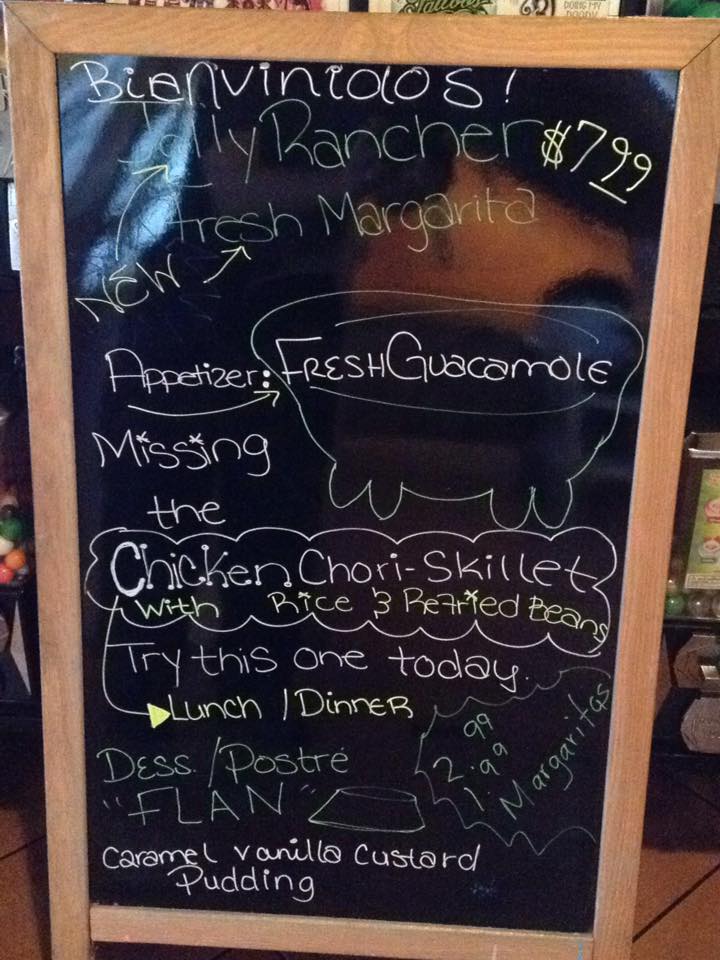 Tattoos
DOING MY
BienviniDOS!
Jolly Rancher $7.99
Fresh Margarita
NEW
Appetizer: FRESH Guacamole
Missing
the
Chicken Chori-Skillet
with Rice & Refried Beans
Try this one today.
Lunch / Dinner
Dess. / Postré
"FLAN"
99
2.99
1.99
Margaritas
Caramel vanilla Custard
Pudding